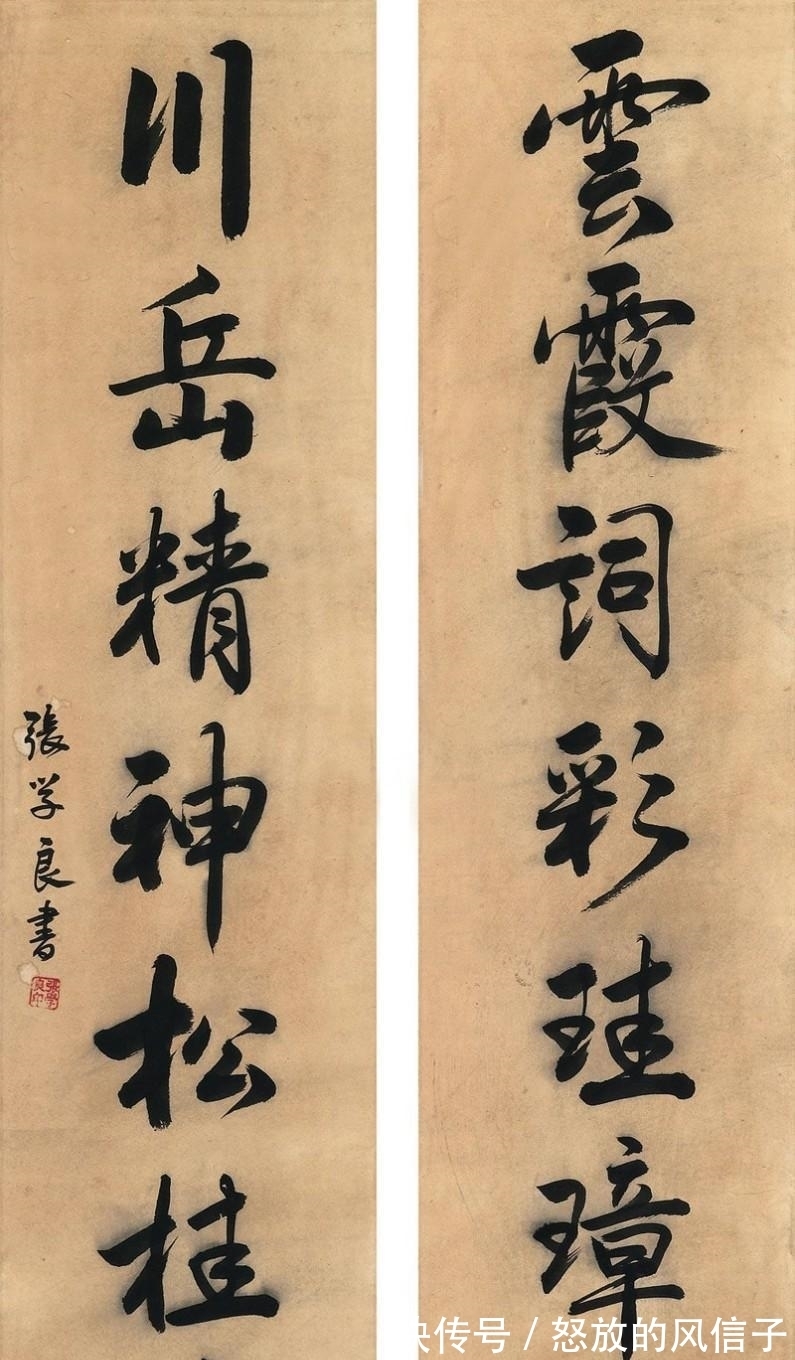 雲霞詞彩珪璋
川岳精神松桂
張学良書
張學良印
快传号 / 怒放的风信子